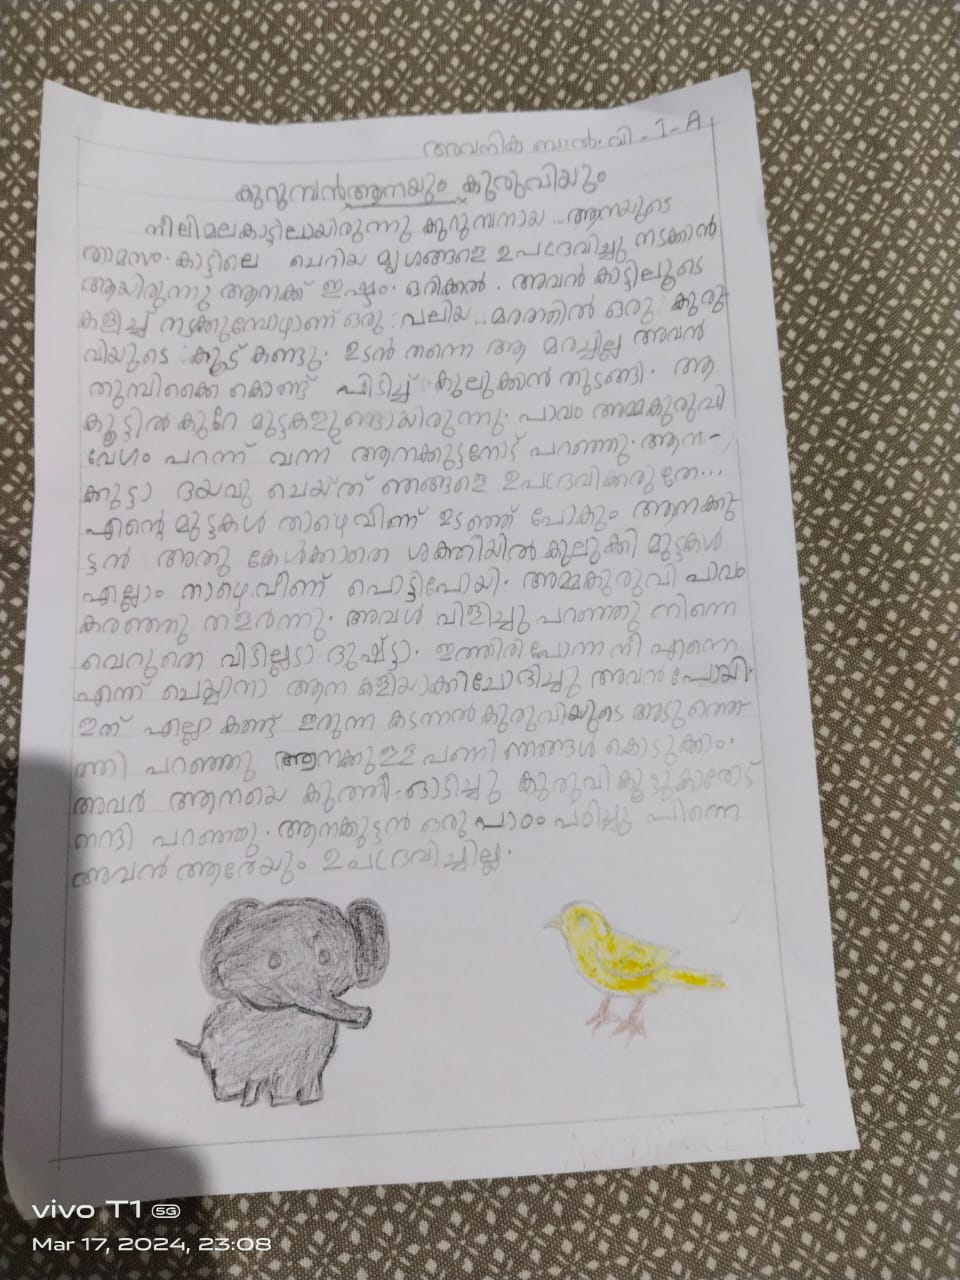 അവനിക ബാൽ.വി - I - A
കുറുമ്പൻആനയും കുരുവിയും
നീലിമലകാട്ടിലായിരുന്നു കുറുമ്പനായ ആനയുടെ
താമസം. കാട്ടിലെ ചെറിയ മൃഗങ്ങളെ ഉപദ്രവിച്ചു നടക്കാൻ
ആയിരുന്നു ആനക്ക് ഇഷ്ടം. ഒരിക്കൽ. അവൻ കാട്ടിലൂടെ
കളിച്ച് നടക്കുമ്പോഴാണ് ഒരു വലിയ മരത്തിൽ ഒരു കുരു
വിയുടെ കൂട് കണ്ടു. ഉടൻ തന്നെ ആ മരച്ചില്ല അവൻ
തുമ്പിക്കൈ കൊണ്ട് പിടിച്ച് കുലുക്കൻ തുടങ്ങി. ആ
കൂട്ടിൽ കുറേ മുട്ടകളുണ്ടായിരുന്നു. പാവം അമ്മകുരുവി
വേഗം പറന്ന് വന്ന ആനക്കുട്ടനോട് പറഞ്ഞു. ആന-
ക്കുട്ടാ ദയവു ചെയ്ത് ഞങ്ങളെ ഉപദ്രവിക്കരുതേ...
എന്റെ മുട്ടകൾ താഴെവീണ് ഉടഞ്ഞ് പോകും ആനക്കു
ട്ടൻ അതു കേൾക്കാതെ ശക്തിയിൽ കുലുക്കി മുട്ടകൾ
എല്ലാം താഴെ വീണ് പൊട്ടിപോയി. അമ്മകുരുവി പാവം
കരഞ്ഞു തളർന്നു. അവൾ വിളിച്ചു പറഞ്ഞു നിന്നെ
വെറുതെ വിടില്ലടാ ദുഷ്ട്ടാ. ഇത്തിരി പോന്ന നീ എന്നെ
എന്ന് ചെയ്യിനാ ആന കളിയാക്കിചോദിച്ചു അവൻ പോയി.
ഇത് എല്ലാ കണ്ട് ഇരുന്ന കടന്നൽ കുരുവിയുടെ അടുത്തെ
ത്തി പറഞ്ഞു ആനക്കുള്ള പണി ഞങ്ങൾ കൊടുക്കാം.
അവർ ആനയെ കുത്തി ഓടിച്ചു കുരുവി കൂട്ടുകാരോട്
നന്ദി പറഞ്ഞു. ആനക്കുട്ടൻ ഒരു പാഠം പഠിച്ചു പിന്നെ
അവൻ ആരേയും ഉപദ്രവിച്ചില്ല.
vivo T1 5G
Mar 17, 2024, 23:08